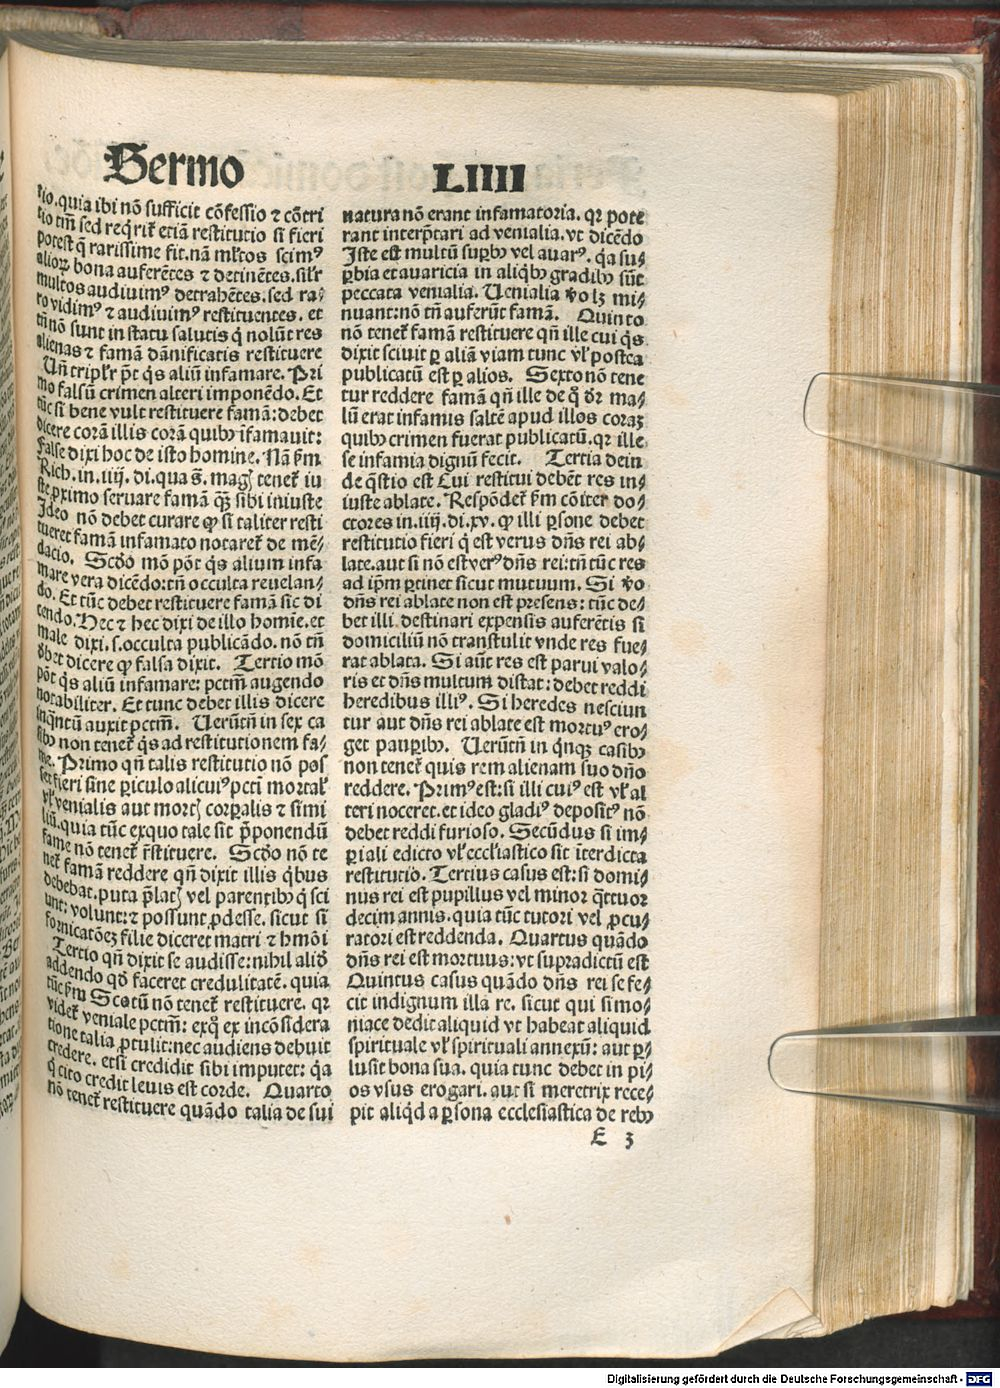 Sermo LIIII
tio. quia ibi nõ sufficit cõfessio ⁊ cõtri
tio tm̃ sed req̃rit̃ etiã restitutio si fieri
potest q̃ rarissime fit. nã ml̃tos scimꝰ
alioꝝ bona auferẽtes ⁊ detinẽtes. sil̃r
multos audiuimꝰ detrahẽtes. sed ra⸗
ro vidimꝰ ⁊ audiuimꝰ restituentes. et
tñ nõ sunt in statu salutis q̇ nolũt res
alienas ⁊ famã dãnificatis restituere
Uñ tripl̃r põt q̇s aliũ infamare. Pri
mo falsũ crimen alteri imponẽdo. Et
tũc si bene vult restituere famã: debet
dicere corã illis corã quibꝰ ĩfamauit:
False dixi hoc de isto homine. Nã ẜm
Rich. in. iiij. di. qua s̃. magꝭ tenet̃ iu
ste ꝓximo seruare famã qꝫ̃ sibi iniuste
Ideo nõ debet curare ꝙ si taliter resti
tueret famã infamato notaret̃ de mẽ⸗
dacio. Scd̃o mõ põt q̇s alium infa
mare vera dicẽdo: tñ occulta reuelan⸗
do. Et tũc debet restituere famã sic di
cendo. Hec ⁊ hec dixi de illo homĩe. et
male dixi. s. occulta publicãdo. nõ tñ
d̃bet dicere ꝙ falsa dixit. Tertio mõ
põt q̇s aliũ infamare: pctm̃ augendo
notabiliter. Et tunc debet illis dicere
inq̃ntũ auxit pctm̃. Uerũtñ in sex ca
sibꝰ non tenet̃ q̇s ad restitutionem fa⸗
me. Primo qñ talis restitutio nõ pos
set fieri sine ꝑiculo alicuiꝰ pcti mortal̃
vl̃ venialis aut mortꝭ corꝑalis ⁊ simi
liũ. quia tũc exquo tale sit p̃ponendũ
fame nõ tenet̃ r̃stituere. Scd̃o nõ te
net̃ famã reddere qñ dixit illis q̇bus
debebat. puta p̃latꝭ vel parentibꝰ q̇ sci
unt: volunt: ⁊ possunt ꝓdesse. sicut si
fornicatõeꝫ filie diceret matri ⁊ hmõi
Tertio qñ dixit se audisse: nihil aliд
addendo qд faceret credulitatẽ. quia
tũc ẜm Scotũ nõ tenet̃ restituere. qꝛ
videt̃ veniale pctm̃: exq̊ ex incõsidera
tione talia ꝓtulit: nec audiens debuit
credere. etsi credidit sibi imputet: q̃a
q̇ cito credit leuis est corde. Quarto
nõ tenet̃ restituere quãdo talia de sui
natura nõ erant infamatoria. qꝛ pote
rant interp̃tari ad venialia. vt dicẽdo
Iste est multũ suꝑbꝰ vel auarꝰ. q̃a su⸗
ꝑbia et auaricia in aliq̇bꝰ gradibꝰ sũt
peccata venialia. Uenialia ṽo lꝫ mi⸗
nuant: nõ tñ auferũt famã. Quinto
nõ tenet̃ famã restituere qñ ille cui q̇s
dixit sciuit ꝑ aliã viam tunc vl̃ postea
publicatũ est ꝑ alios. Sexto nõ tene
tur reddere famã qñ ille de q̊ d̃r ma⸗
lũ erat infamis saltẽ apud illos coraꝫ
quibꝰ crimen fuerat publicatũ. qꝛ ille
se infamia dignũ fecit. Tertia dein
de q̃stio est Cui restitui debẽt res in⸗
iuste ablate. Respõdet̃ ẜm cõiter do⸗
ctores in. iiij. di. xv. ꝙ illi ꝑsone debet
restitutio fieri q̇ est verus dñs rei ab⸗
late. aut si nõ est verꝰ dñs rei: tñ tũc res
ad ip̃m ꝑtinet sicut mutuum. Si ṽo
dñs rei ablate non est presens: tũc de⸗
bet illi destinari expensis auferẽtis si
domiciliũ nõ transtulit vnde res fue⸗
rat ablata. Si aũt res est parui valo⸗
ris et dñs multum distat: debet reddi
heredibus illiꝰ. Si heredes nesciun
tur aut dñs rei ablate est mortuꝰ ero⸗
get pauꝑibꝰ. Uerũtñ in q̇nqꝫ casibꝰ
non tenet̃ quis rem alienam suo dño
reddere. Primꝰ est: si illi cuiꝰ est vl̃ al
teri noceret. et ideo gladiꝰ depositꝰ nõ
debet reddi furioso. Secũdus si im⸗
ꝑiali edicto vl̃ eccl̃iastico sit ĩterdicta
restitutio. Tertius casus est: si domi⸗
nus rei est pupillus vel minor q̃ttuor
decim annis. quia tũc tutori vel ꝓcu⸗
ratori est reddenda. Quartus quãdo
dñs rei est mortuus: vt supradictũ est
Quintus casus quãdo dñs rei se fe⸗
cit indignum illa re. sicut qui simo⸗
niace dedit aliquid vt habeat aliquid
spirituale vl̃ spirituali annexũ: aut ꝑ⸗
lusit bona sua. quia tunc debet in pi⸗
os vsus erogari. aut si meretrix rece⸗
pit aliq̇d a ꝑsona ecclesiastica de rebꝰ
E 3
Digitalisierung gefördert durch die Deutsche Forschungsgemeinschaft - DFG